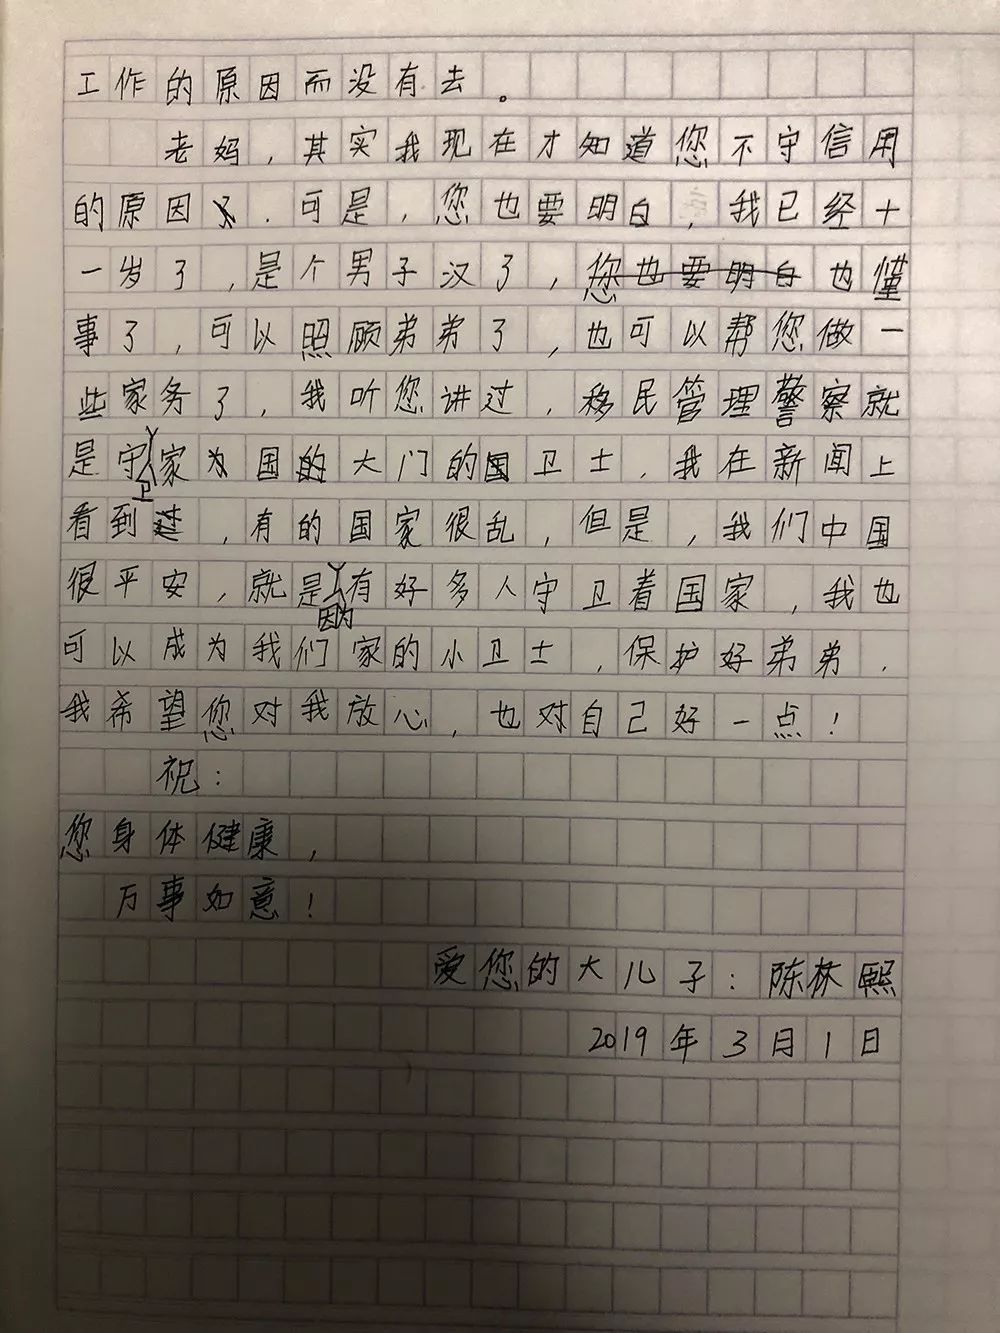 工作的原因而没有去。
老妈，其实我现在才知道您不守信用
的原因了．可是，您也要明白，我已经十
一岁了，是个男子汉了，您也要明白也懂
事了，可以照顾弟弟了，也可以帮您做一
些家务了，我听您讲过，移民管理警察就
是守卫家为国的大门的国卫士．我在新闻上
看到过，有的国家很乱，但是，我们中国
很平安，就是因为有好多人守卫着国家，我也
可以成为我们家的小卫士，保护好弟弟．
我希望您对我放心，也对自己好一点！
祝：
您身体健康，
万事如意！
爱您的大儿子：陈林熙
2019年3月1日